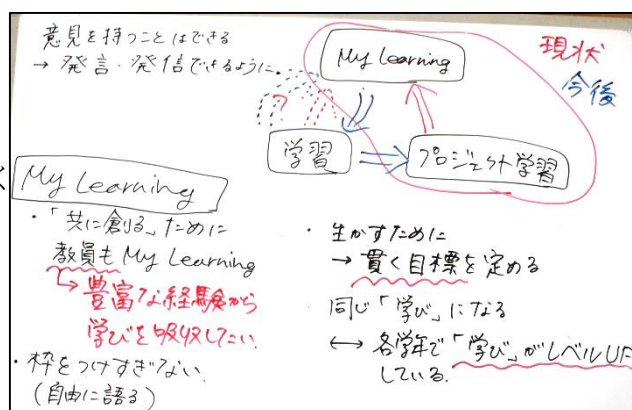 意見を持つことはできる
→ 発言・発信できるように。
My Learning
現状
今後
学習
プロジェクト学習
My Learning
・「共に創る」ために
教員も My Learning
↳ 豊富な経験から
学びを吸収したい
・枠をつけすぎない
(自由に語る)
・生かすために
→ 貫く目標を定める
同じ「学び」になる
↔ 各学年で「学び」がレベルUP
している。